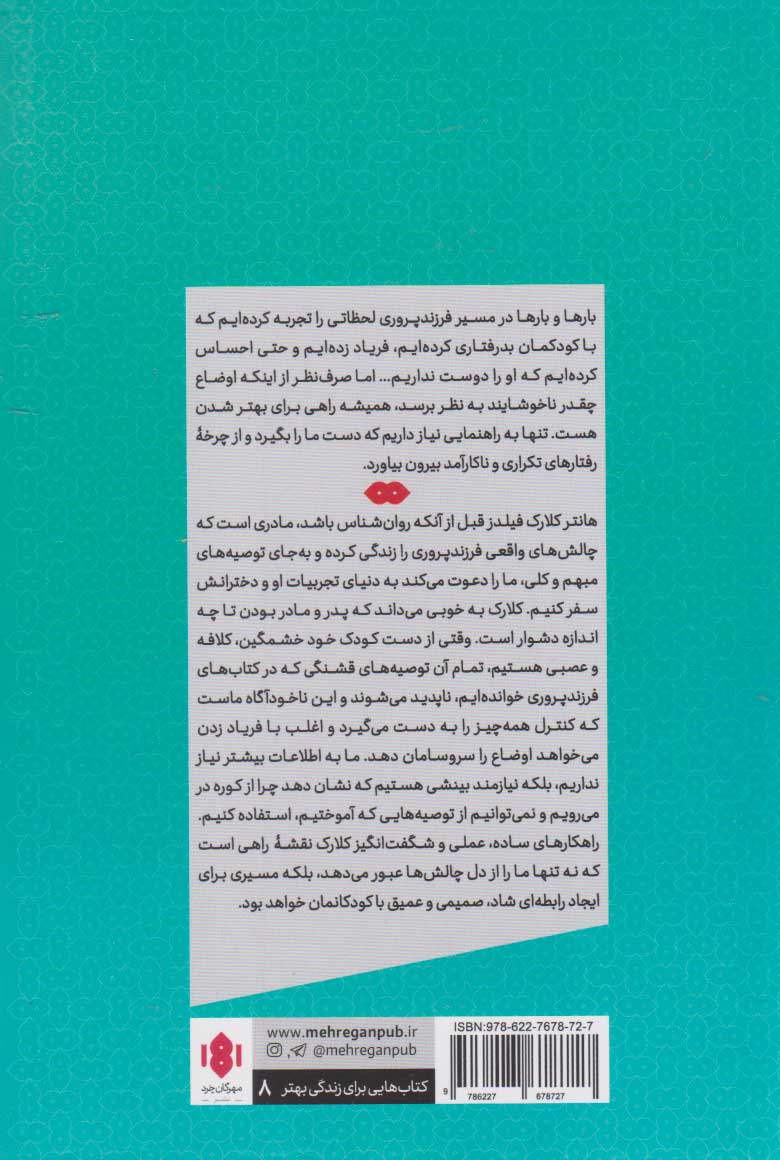 بارها و بارها در مسیر فرزندپروری لحظاتی را تجربه کرده‌ایم که
با کودکمان بدرفتاری کرده‌ایم، فریاد زده‌ایم و حتی احساس
کرده‌ایم که او را دوست نداریم... اما صرف‌نظر از اینکه اوضاع
چقدر ناخوشایند به نظر برسد، همیشه راهی برای بهتر شدن
هست. تنها به راهنمایی نیاز داریم که دست ما را بگیرد و از چرخهٔ
رفتارهای تکراری و ناکارآمد بیرون بیاورد.
هانتر کلارک فیلدز قبل از آنکه روان‌شناس باشد، مادری است که
چالش‌های واقعی فرزندپروری را زندگی کرده و به‌جای توصیه‌های
مبهم و کلی، ما را دعوت می‌کند به دنیای تجربیات او و دخترانش
سفر کنیم. کلارک به خوبی می‌داند که پدر و مادر بودن تا چه
اندازه دشوار است. وقتی از دست کودک خود خشمگین، کلافه
و عصبی هستیم، تمام آن توصیه‌های قشنگی که در کتاب‌های
فرزندپروری خوانده‌ایم، ناپدید می‌شوند و این ناخودآگاه ماست
که کنترل همه‌چیز را به دست می‌گیرد و اغلب با فریاد زدن
می‌خواهد اوضاع را سروسامان دهد. ما به اطلاعات بیشتر نیاز
نداریم، بلکه نیازمند بینشی هستیم که نشان دهد چرا از کوره در
می‌رویم و نمی‌توانیم از توصیه‌هایی که آموختیم، استفاده کنیم.
راهکارهای ساده، عملی و شگفت‌انگیز کلارک نقشهٔ راهی است
که نه تنها ما را از دل چالش‌ها عبور می‌دهد، بلکه مسیری برای
ایجاد رابطه‌ای شاد، صمیمی و عمیق با کودکانمان خواهد بود.
ISBN:978-622-7678-72-7
9 786227 678727
www.mehreganpub.ir
@mehreganpub
کتاب‌هایی برای زندگی بهتر ۸
مهرگان خرد
نشر